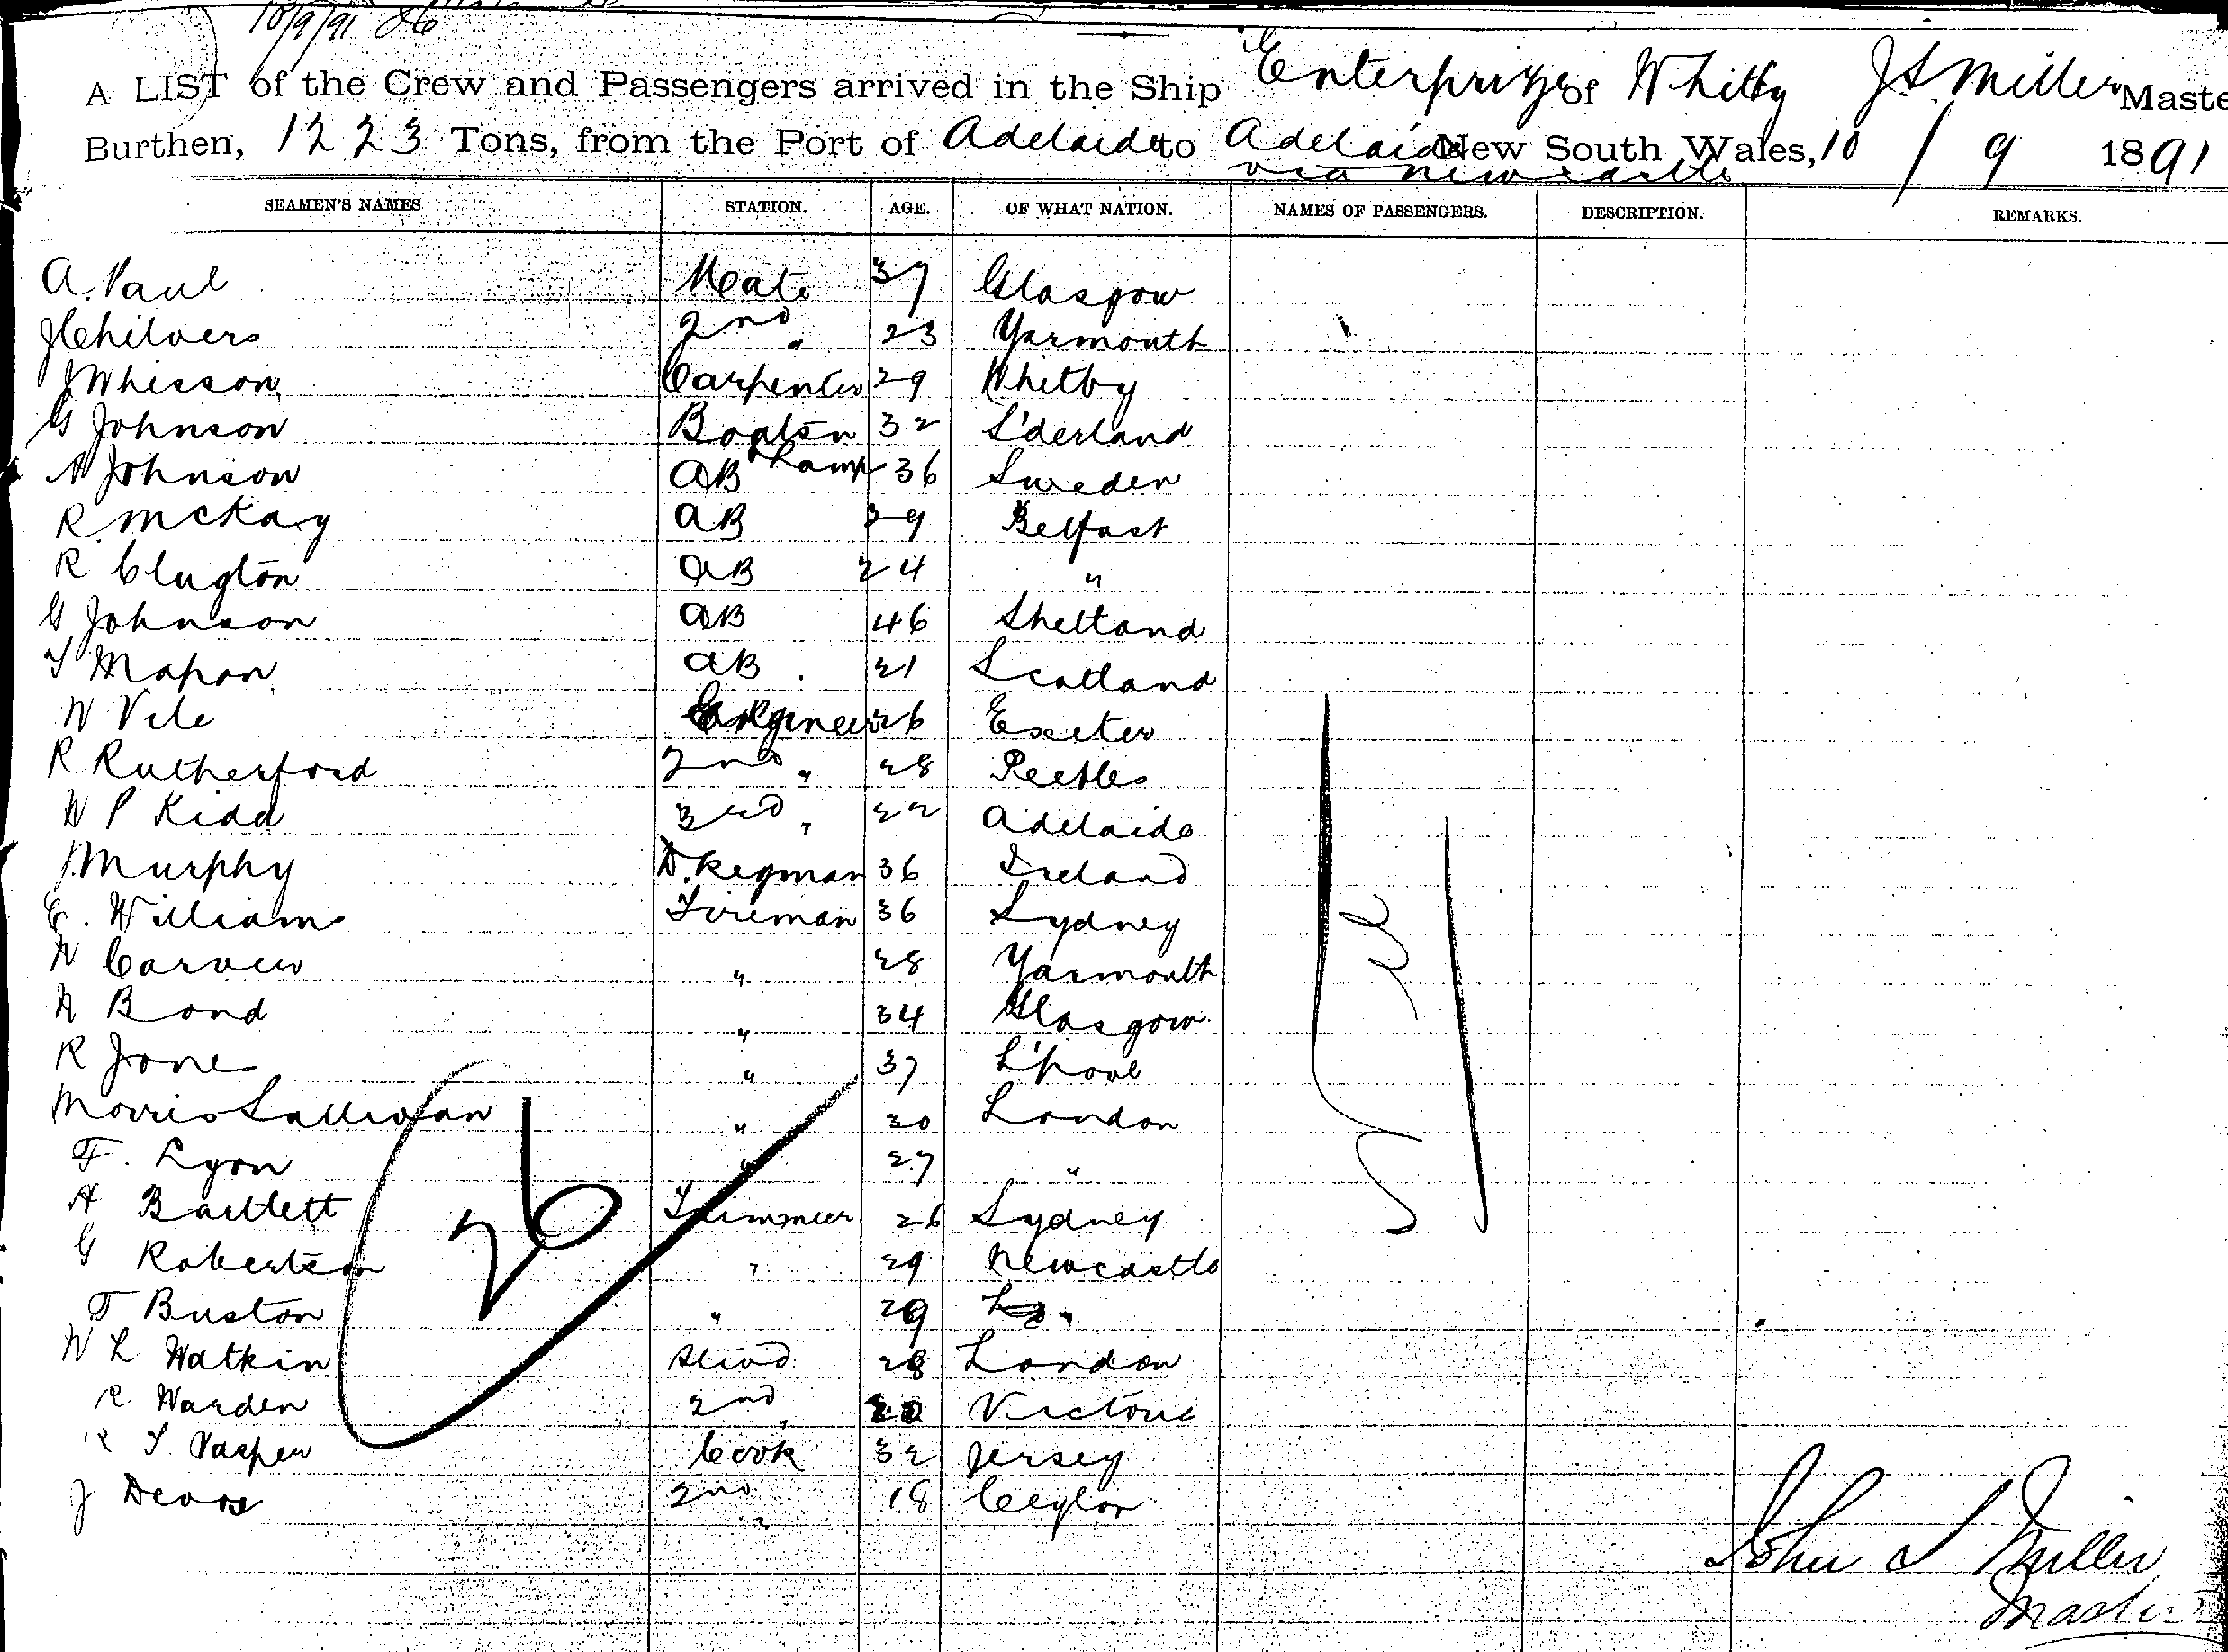 10/9/91 26
A LIST of the Crew and Passengers arrived in the Ship Enterprize of Whitby J S Miller Maste
Burthen, 1223 Tons, from the Port of Adelaide to Adelaide New South Wales, 10 / 9 1891
via Newcastle
SEAMEN'S NAMES STATION. AGE. OF WHAT NATION. NAMES OF PASSENGERS. DESCRIPTION. REMARKS.
A. Paul Mate 37 Glasgow
J Chilvers 2nd " 23 Yarmouth
J Whisson Carpenter 29 Whitby
G Johnson Boatsn 32 S'derland
A Johnson AB & Lamp 36 Sweden
R McKay AB 39 Belfast
R Clugton AB 24 "
G Johnson AB 46 Shetland
T Mapon AB 21 Scotland
W Vile Engineer 26 Exeter
R Rutherford 2nd " 28 Peebles
W P Kidd 3rd " 22 Adelaide
J. Murphy D. Keyman 36 Ireland
E. William Fireman 36 Sydney
W Carver " 28 Yarmouth
W Bond " 34 Glasgow
R Jone " 37 L'pool
Morris Sullivan " 30 London
F. Lyon " 27 "
A Bartlett Trimmer 26 Sydney
G Robertson " 29 Newcastle
T Buston " 29 "
W L Watkin Stwd 28 London
R. Warden 2nd " Victoria
R T. Vasper Cook 32 Jersey
J Devos 2nd " 18 Ceylon
Nil
26
John S Miller
Master